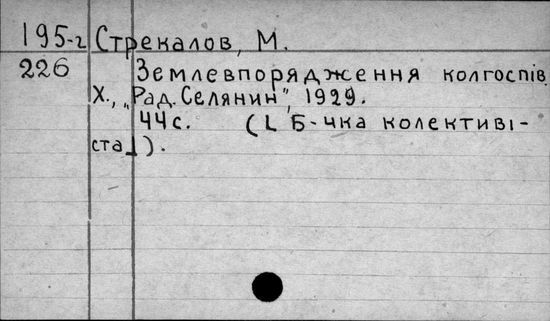 195-г Стрекалов, М.
226 Землевпорядження колгоспів.
Х., „Рад. Селянин", 1929.
44 с. (L Б-чка колективі-
ста⅃).